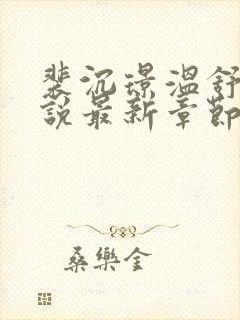 裴沉璟溫舒
說最新章節
桑樂金